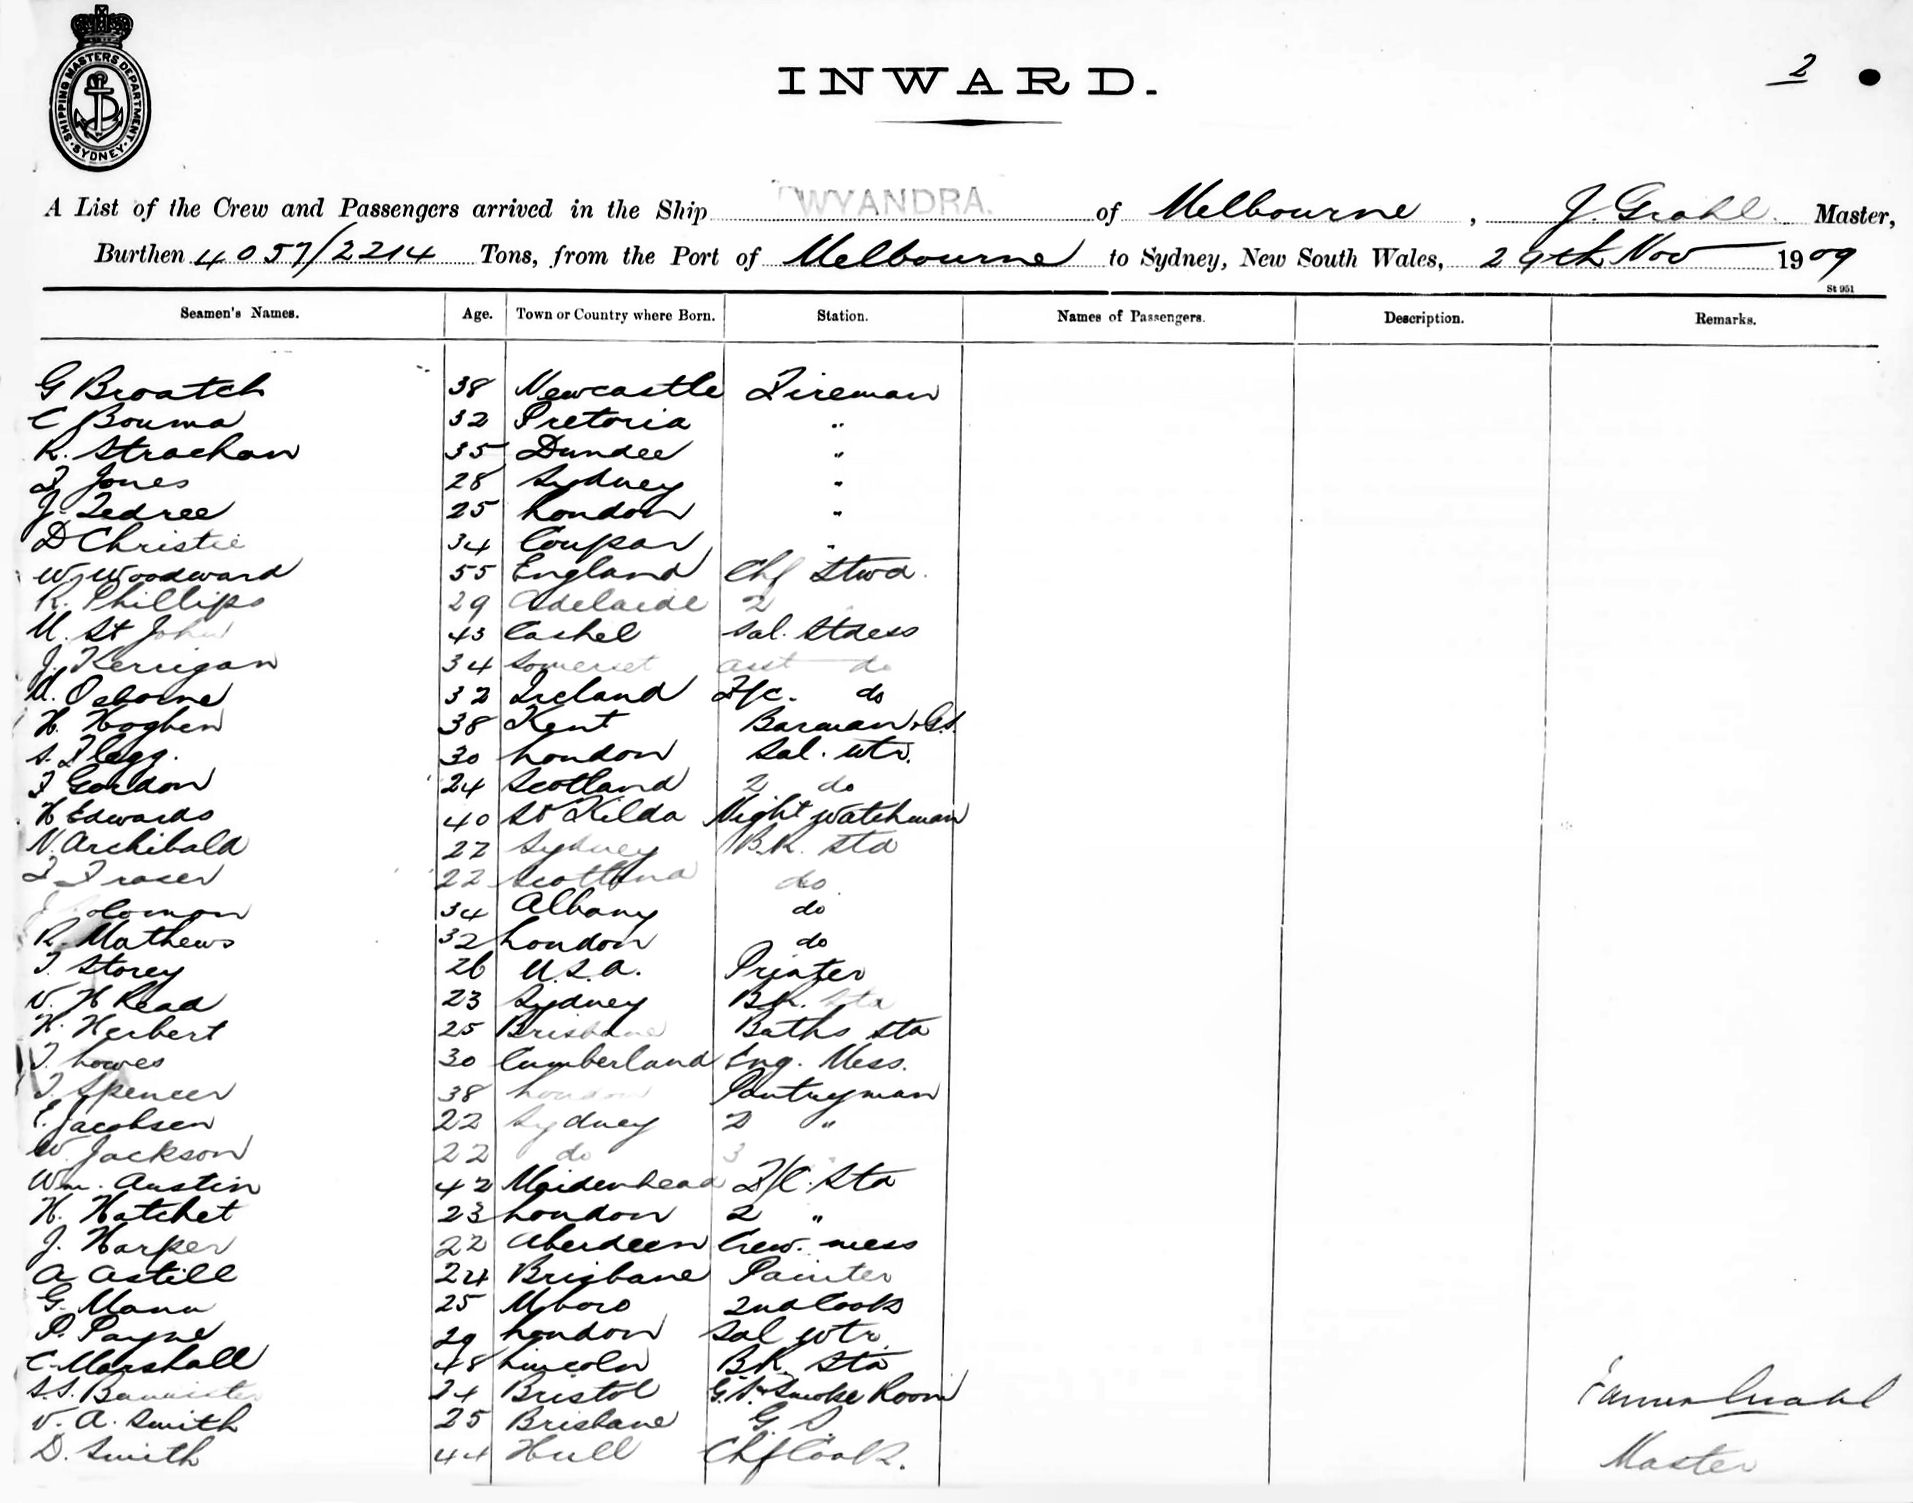 SHIPPING MASTERS DEPARTMENT · SYDNEY ·
INWARD.
2
A List of the Crew and Passengers arrived in the Ship WYANDRA. of Melbourne, J. Grahl. Master,
Burthen 4057/2214 Tons, from the Port of Melbourne to Sydney, New South Wales, 29th Nov 1909
St 951
Seamen's Names. Age. Town or Country where Born. Station. Names of Passengers. Description. Remarks.
G Broatch 38 Newcastle Fireman
C Bouma 32 Pretoria "
R. Strachan 35 Dundee "
F Jones 28 Sydney "
J. Fedree 25 London "
D Christie 34 Coupar "
W. Woodward 55 England Chf Stwd.
R. Phillips 29 Adelaide 2
M. St John 43 Cashel Sal. Stdess
J. Kerrigan 34 Somerset asst do
M. Osborne 32 Ireland F/c. do
H. Hogben 38 Kent Barman & G.S.
S. Flegg. 30 London Sal. wtr.
F Gordon 24 Scotland 2 do
H Edwards 40 St Kilda Night Watchman
N. Archibald 22 Sydney B.R. Std
F Fraser 22 Scotland do
Solomon 34 Albany do
R. Mathews 32 London do
T. Storey 26 U.S.A. Printer
W. H Read 23 Sydney B.R. Std
H. Herbert 25 Brisbane Baths Std
T. Lowes 30 Cumberland Eng. Mess.
T. Spencer 38 London Pantryman
E. Jacobsen 22 Sydney 2 "
W. Jackson 22 do 3 "
Wm. Austin 42 Maidenhead F/C. Std
H. Hatchet 23 London 2 "
J. Harper 22 Aberdeen Crew. mess
A Astill 24 Brisbane Painter
G. Mann 25 Mboro 2nd Cook
P. Payne 29 London Sal wtr.
C. Marshall 48 Lincoln B.R. Std
S.S. Bannister 24 Bristol G.S. & Smoke Room
V. A. Smith 25 Brisbane G. S.
D. Smith 44 Hull Chf Cook.
James Grahl
Master